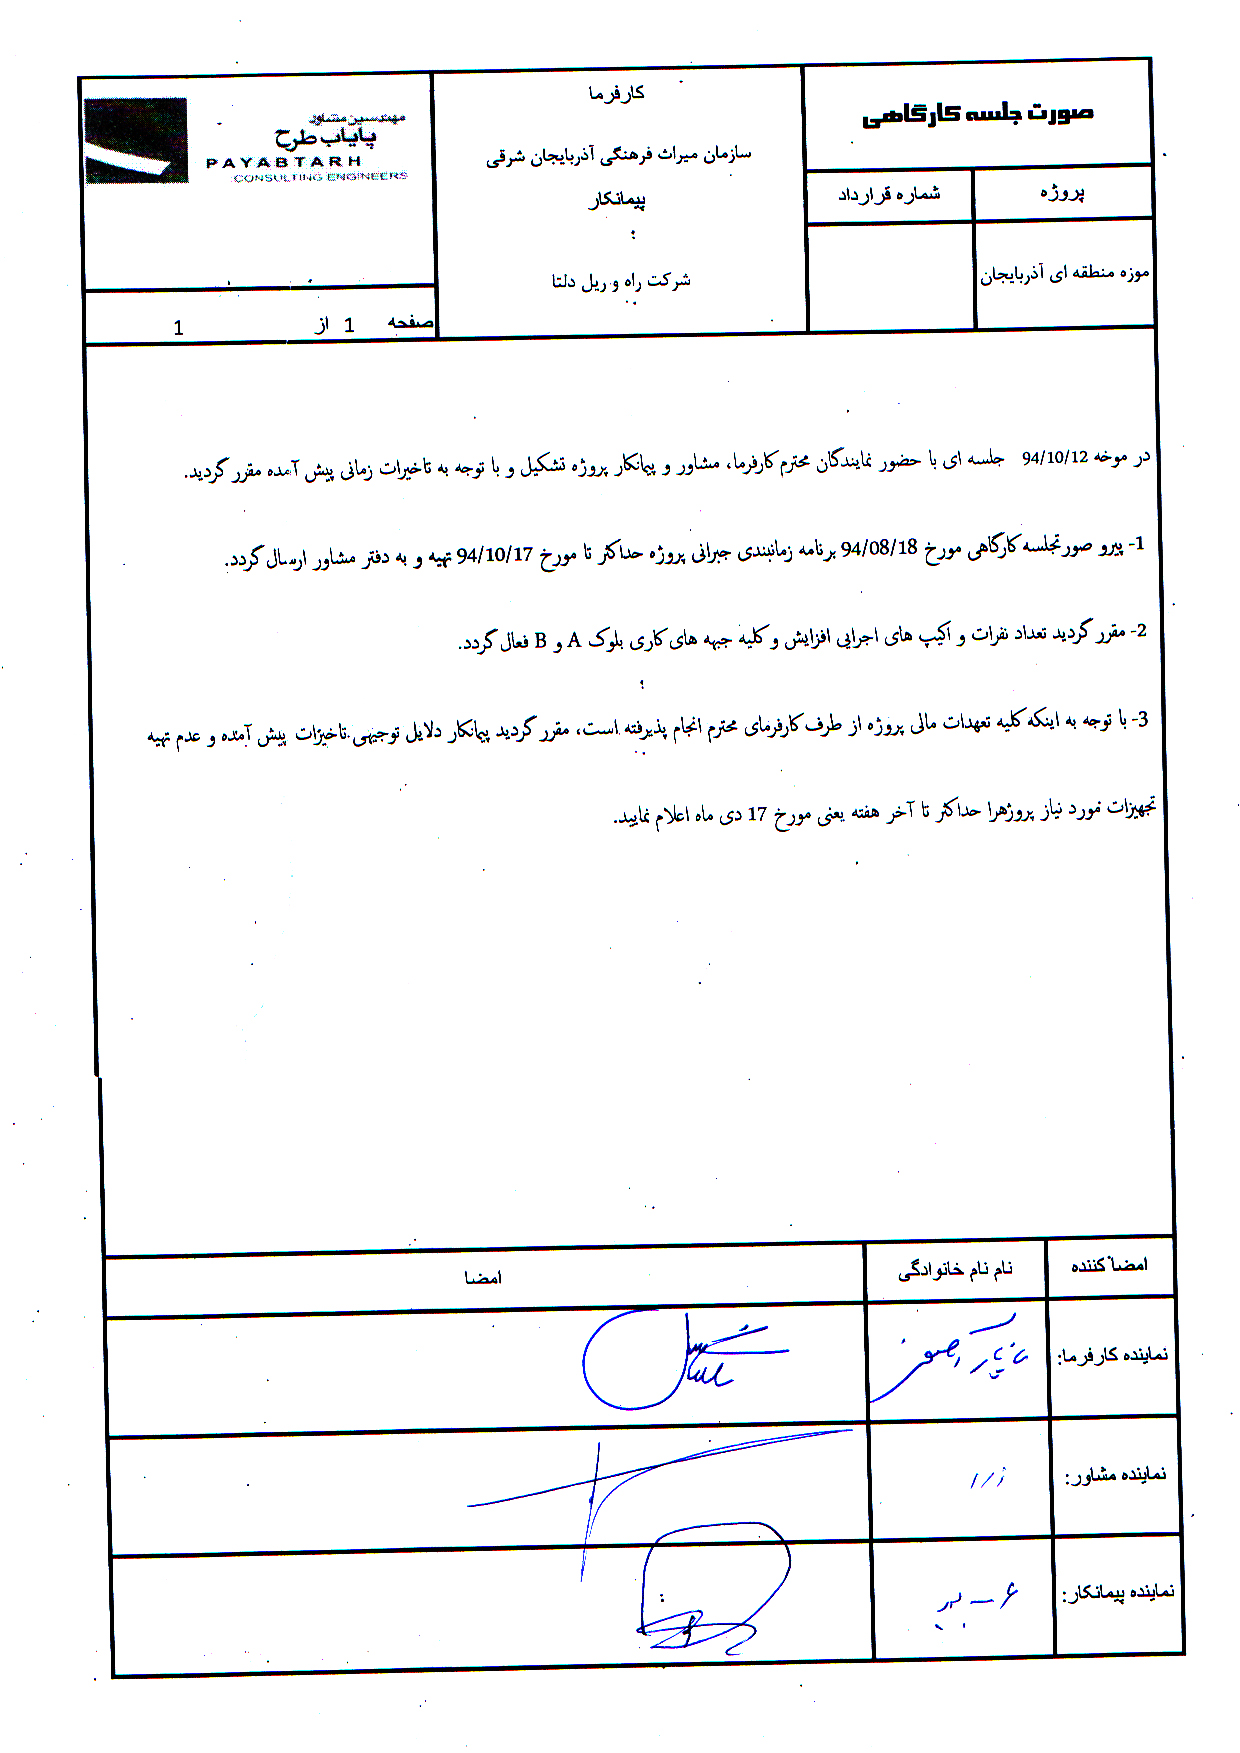 صورت جلسه کارگاهی
پروژه
شماره قرارداد
موزه منطقه ای آذربایجان
کارفرما
سازمان میراث فرهنگی آذربایجان شرقی
پیمانکار
:
شرکت راه و ریل دلتا
مهندسین مشاور
پایاب طرح
PAYABTARH
CONSULTING ENGINEERS
صفحه 1 از 1
در موخه 94/10/12 جلسه ای با حضور نمایندگان محترم کارفرما، مشاور و پیمانکار پروژه تشکیل و با توجه به تاخیرات زمانی پیش آمده مقرر گردید.
1- پیرو صورتجلسه کارگاهی مورخ 94/08/18 برنامه زمانبندی جبرانی پروژه حداکثر تا مورخ 94/10/17 تهیه و به دفتر مشاور ارسال گردد.
2- مقرر گردید تعداد نفرات و اکیپ های اجرایی افزایش و کلیه جبهه های کاری بلوک A و B فعال گردد.
3- با توجه به اینکه کلیه تعهدات مالی پروژه از طرف کارفرمای محترم انجام پذیرفته است، مقرر گردید پیمانکار دلایل توجیهی تاخیرات پیش آمده و عدم تهیه
تجهیزات مورد نیاز پروژهرا حداکثر تا آخر هفته یعنی مورخ 17 دی ماه اعلام نمایید.
امضا کننده
نام نام خانوادگی
امضا
نماینده کارفرما:
نماینده مشاور:
نماینده پیمانکار: